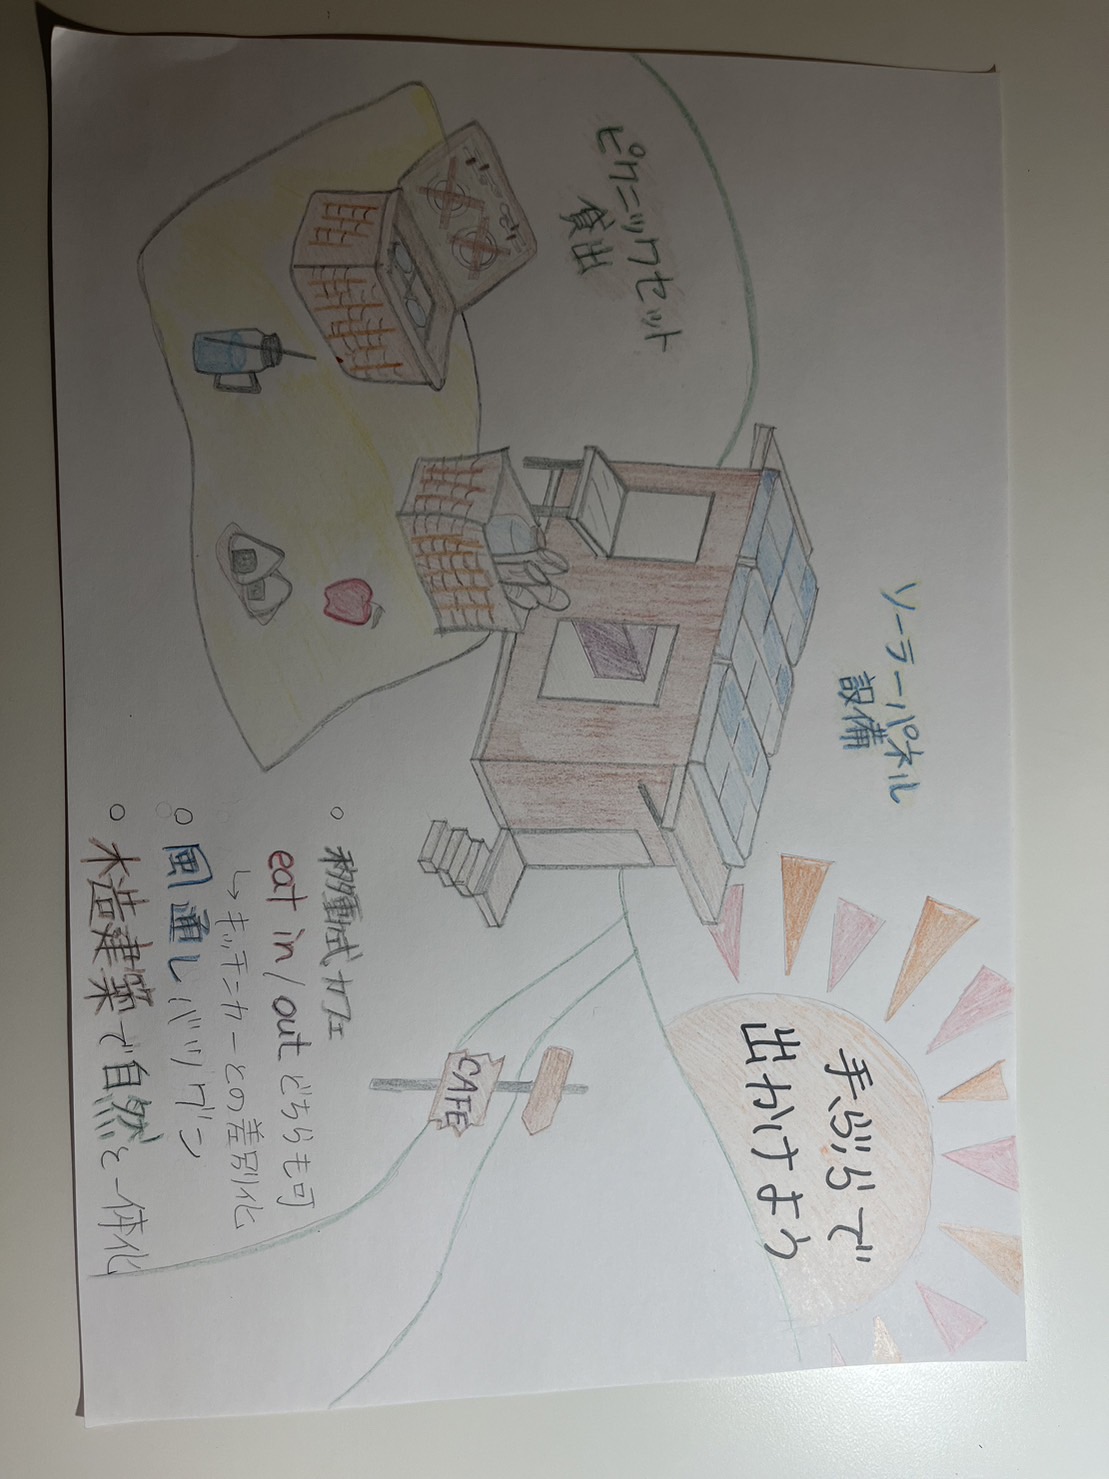 ピクニックセット
貸出
ソーラーパネル
設備
手ぶらで
出かけよう
CAFE
。移動式カフェ
eat in/out どちらも可
↳キッチンカーとの差別化
。風通しバツグン
。木造建築で自然と一体化